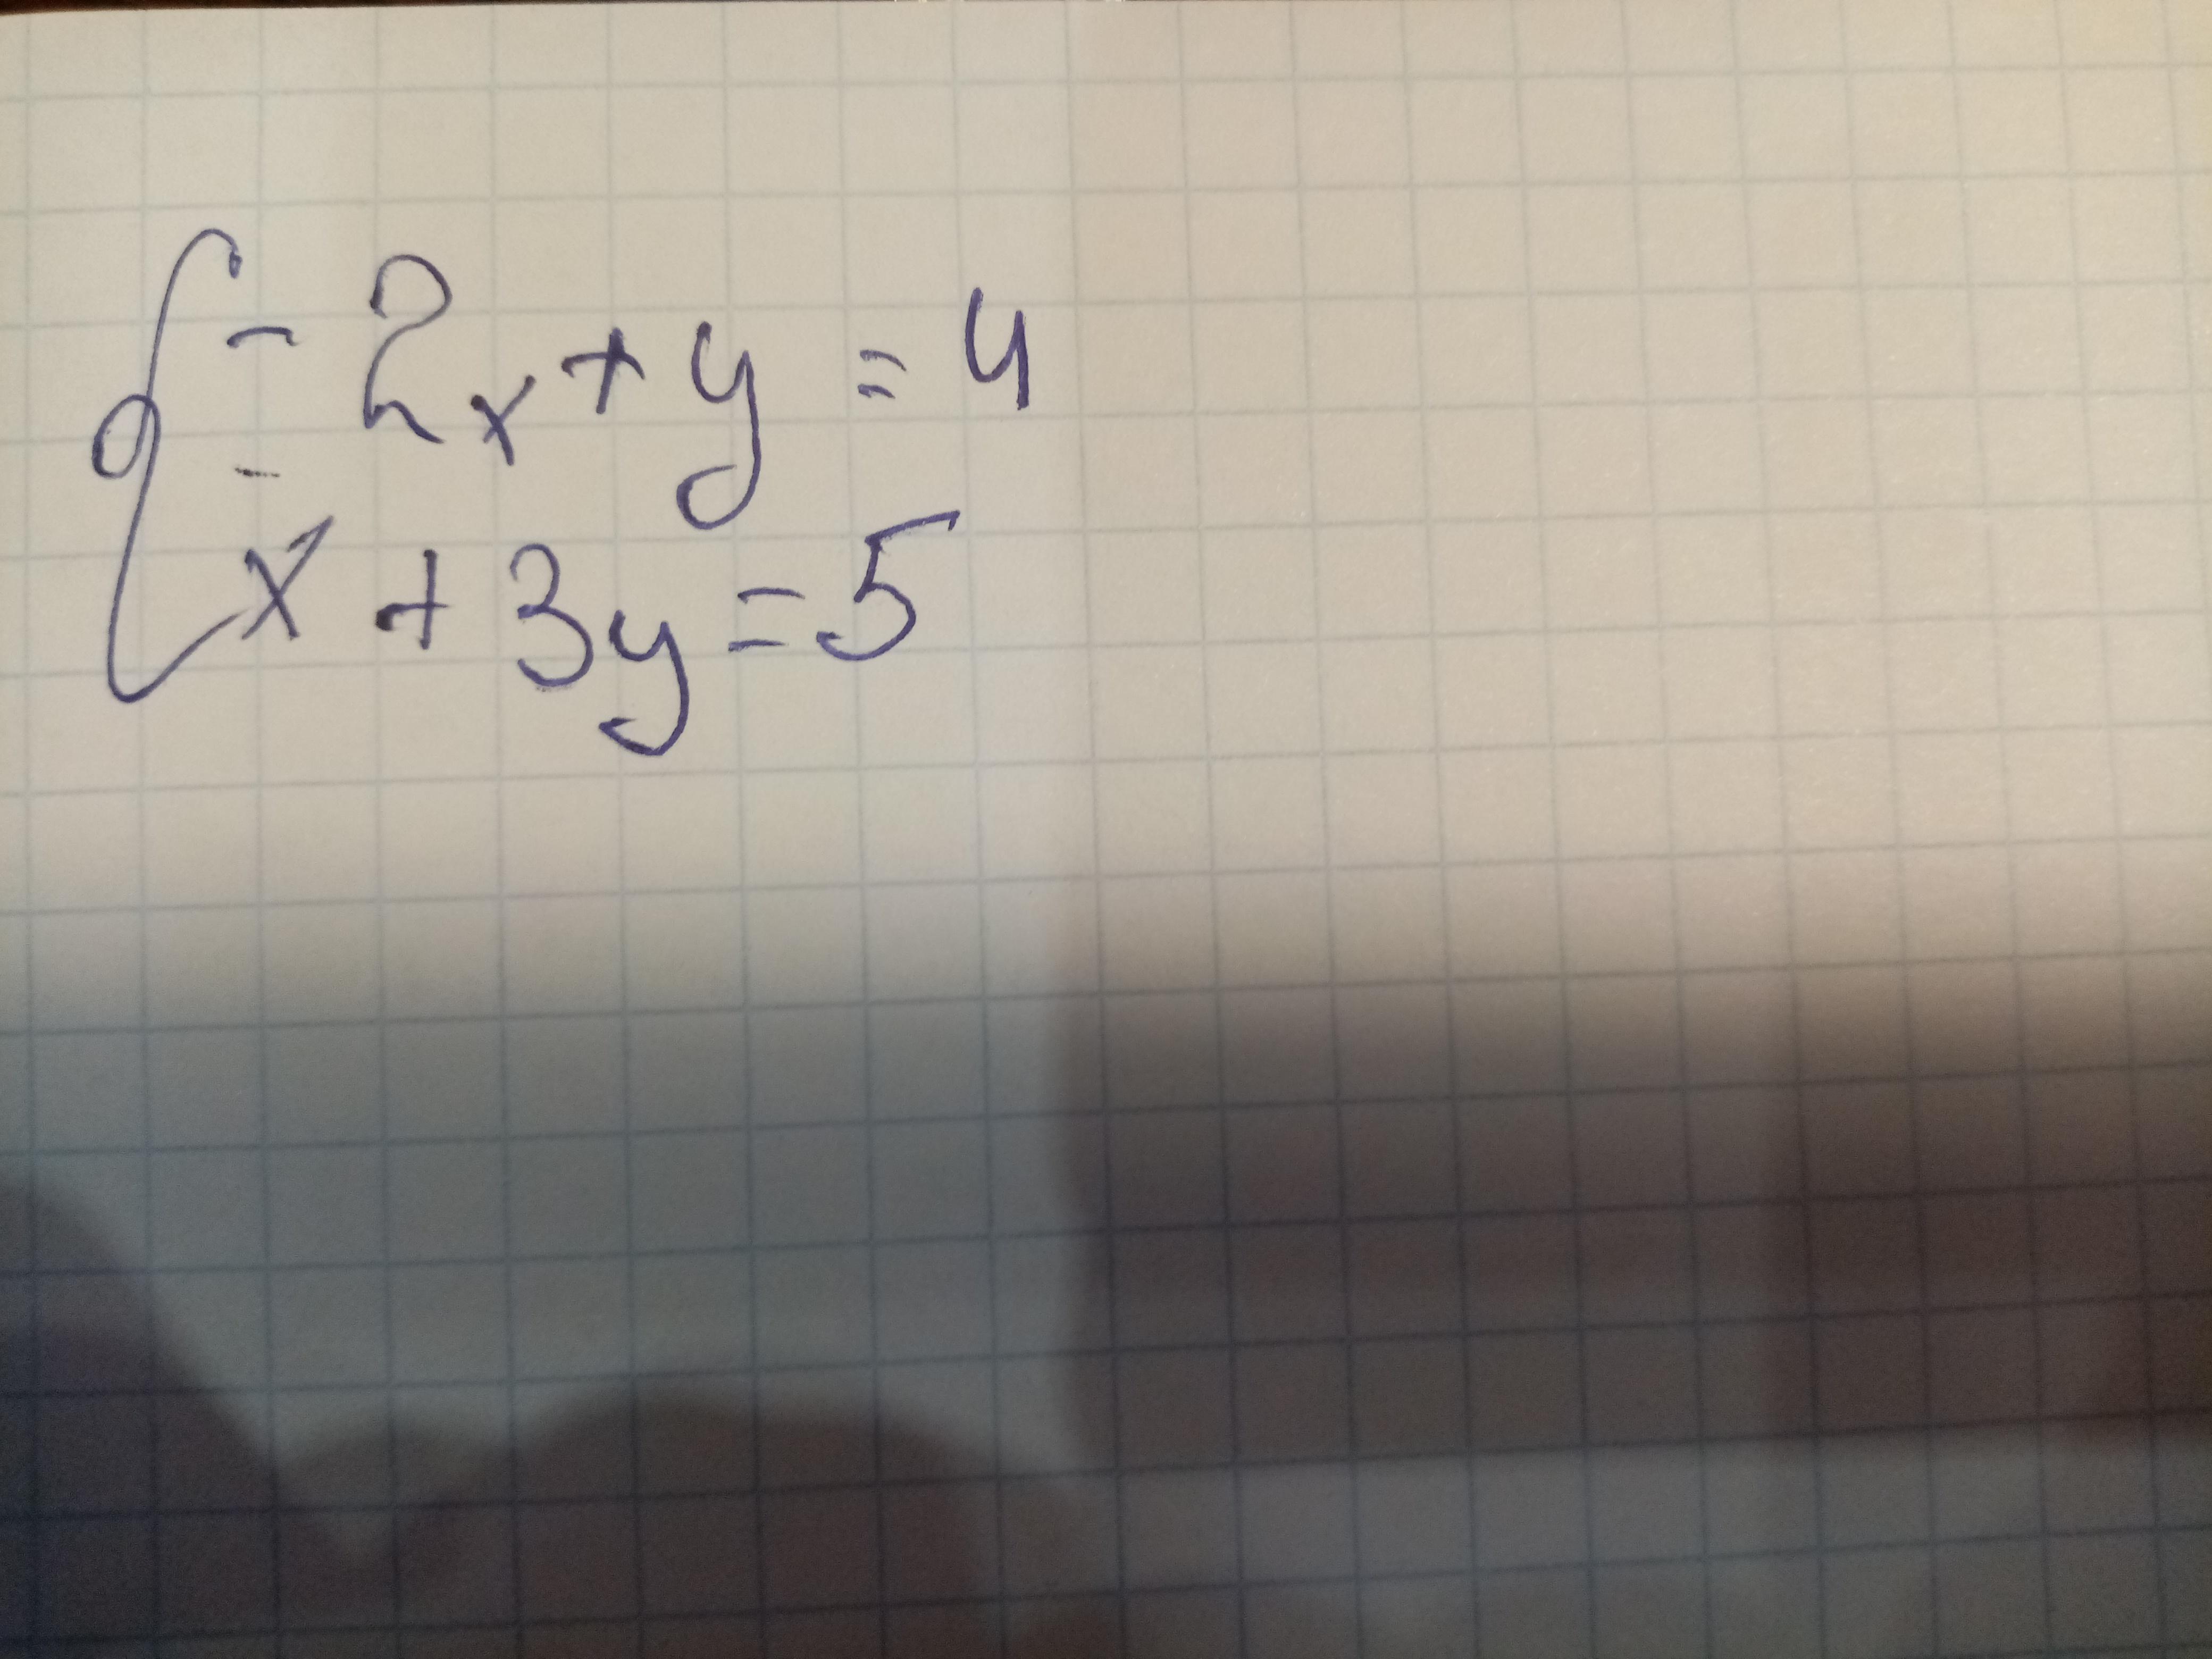 - 2x + y = 4
-
x + 3y = 5